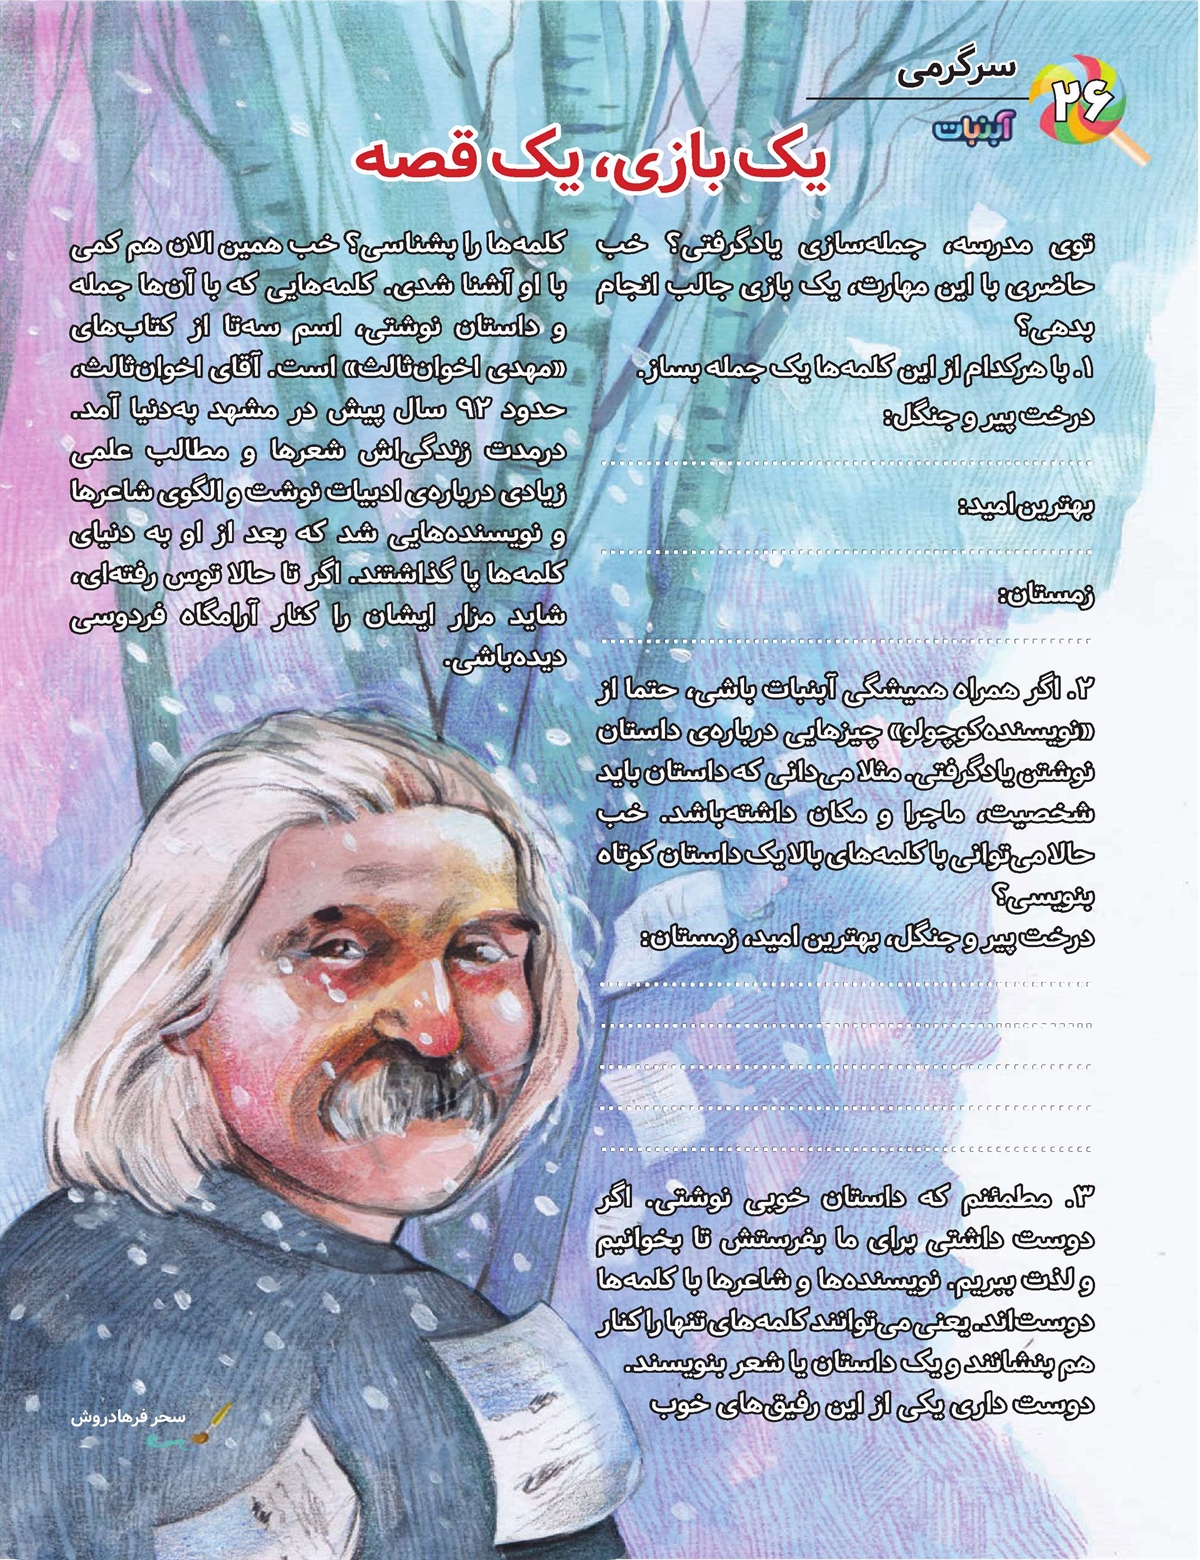 سرگرمی
۲۶
آبنبات
یک بازی، یک قصه
توی مدرسه، جمله‌سازی یادگرفتی؟ خب
حاضری با این مهارت، یک بازی جالب انجام
بدهی؟
۱. با هرکدام از این کلمه‌ها یک جمله بساز.
درخت پیر و جنگل:
بهترین‌امید:
زمستان:
۲. اگر همراه همیشگی آبنبات باشی، حتما از
«نویسنده‌کوچولو» چیزهایی درباره‌ی داستان
نوشتن یادگرفتی. مثلا می‌دانی که داستان باید
شخصیت، ماجرا و مکان داشته‌باشد. خب
حالا می‌توانی با کلمه‌های بالا یک داستان کوتاه
بنویسی؟
درخت پیر و جنگل، بهترین امید، زمستان:
۳. مطمئنم که داستان خوبی نوشتی. اگر
دوست داشتی برای ما بفرستش تا بخوانیم
و لذت ببریم. نویسنده‌ها و شاعرها با کلمه‌ها
دوست‌اند. یعنی می‌توانند کلمه‌های تنها را کنار
هم بنشانند و یک داستان یا شعر بنویسند.
دوست داری یکی از این رفیق‌های خوب
کلمه‌ها را بشناسی؟ خب همین الان هم کمی
با او آشنا شدی. کلمه‌هایی که با آن‌ها جمله
و داستان نوشتی، اسم سه‌تا از کتاب‌های
«مهدی اخوان‌ثالث» است. آقای اخوان‌ثالث،
حدود ۹۲ سال پیش در مشهد به‌دنیا آمد.
درمدت زندگی‌اش شعرها و مطالب علمی
زیادی درباره‌ی ادبیات نوشت و الگوی شاعرها
و نویسنده‌هایی شد که بعد از او به دنیای
کلمه‌ها پا گذاشتند. اگر تا حالا توس رفته‌ای،
شاید مزار ایشان را کنار آرامگاه فردوسی
دیده‌باشی.
سحر فرهادروش